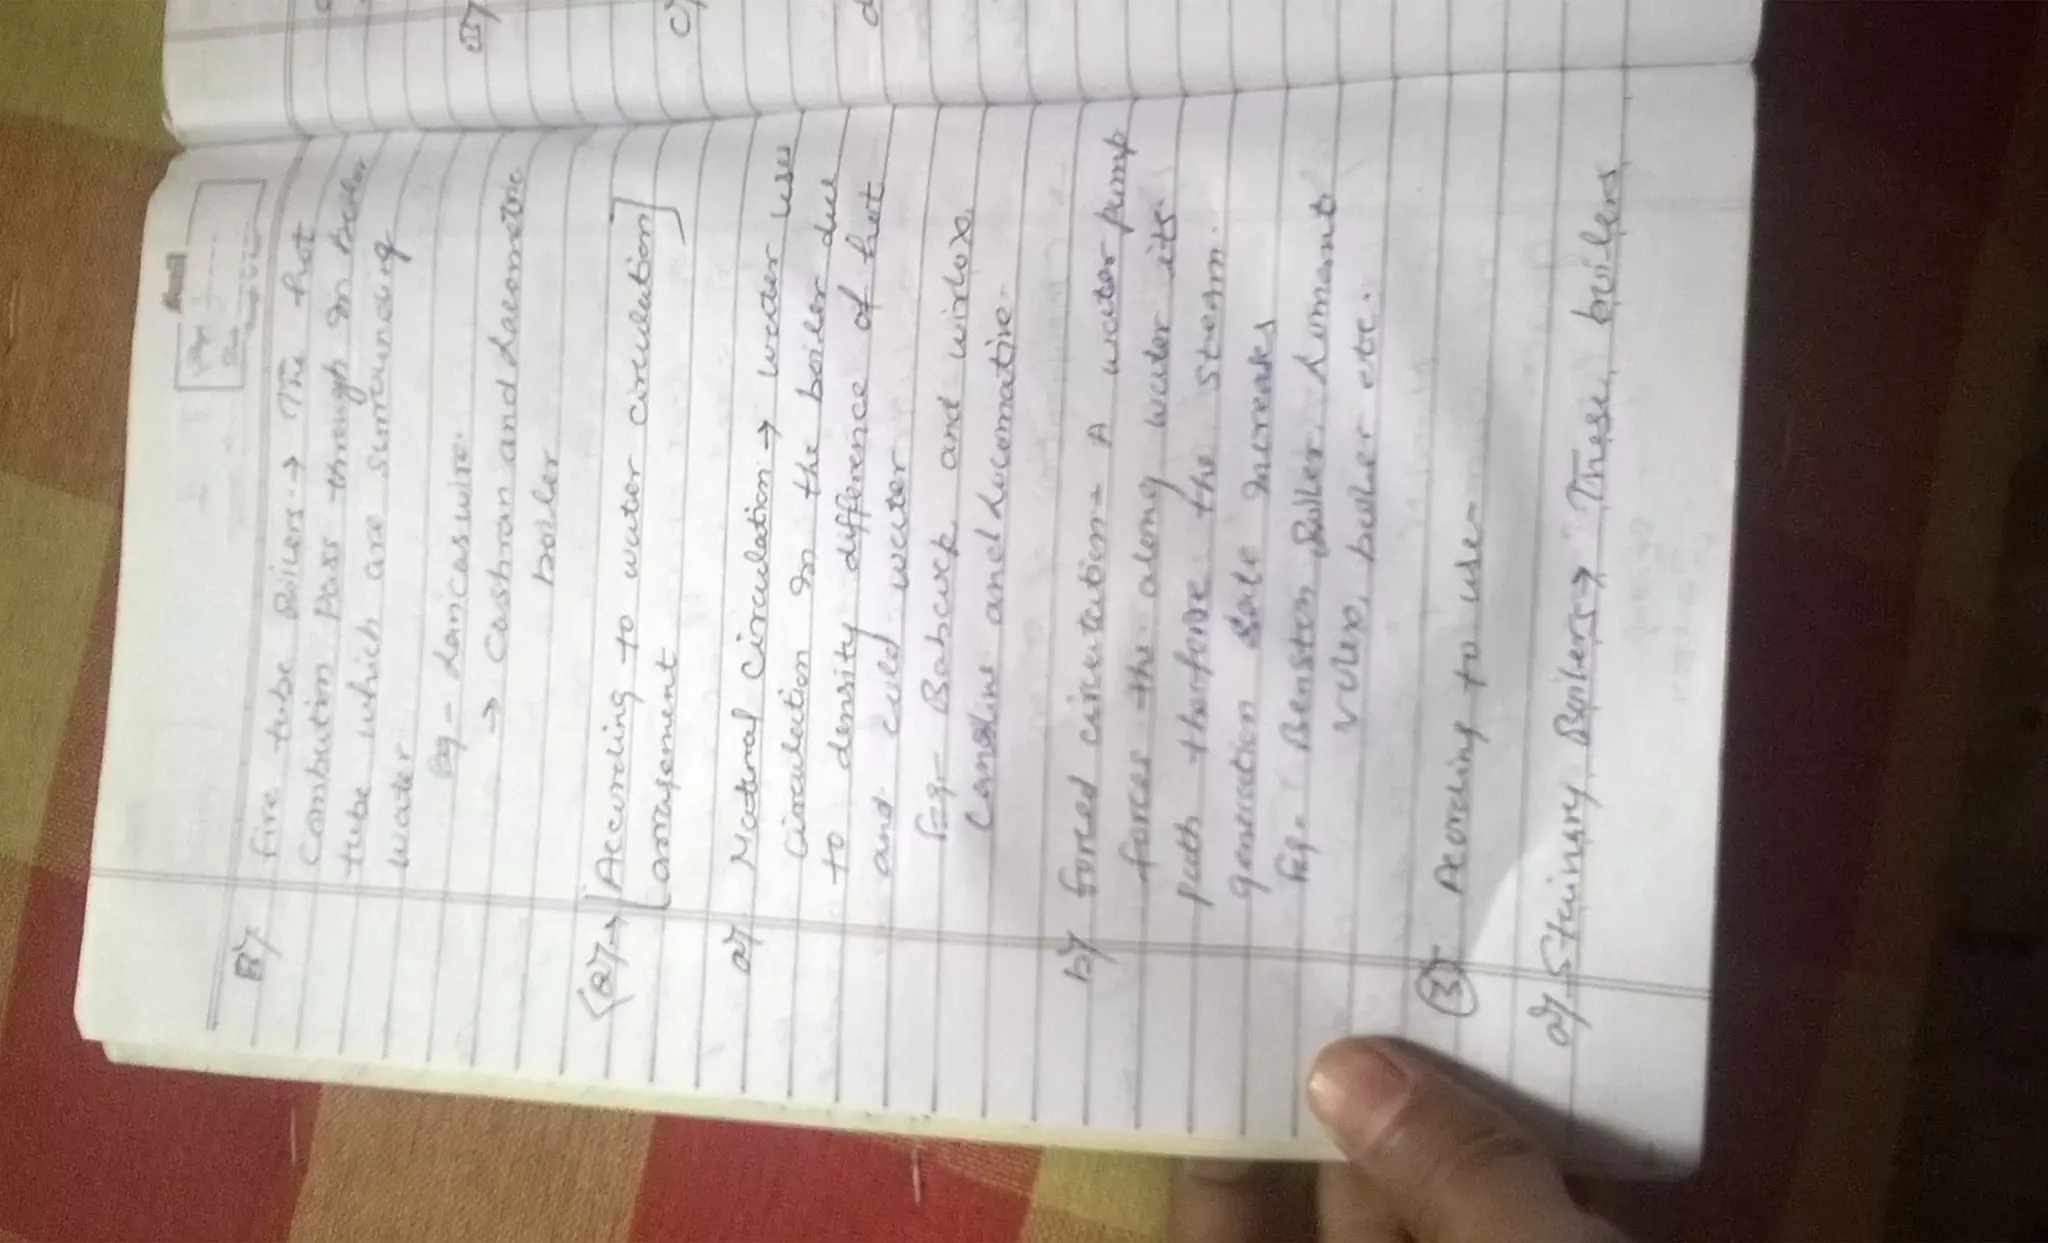 B7 fire tube Boilers → The hot
Combution pass through in boiler
tube which are surrounding
water
Eg- Lancaswire.
→ Cashran and Lacometric
boiler
(27→ [According to water circulation]
[arragement
a7 Natural Circulation → water use
Circulation in the boiler due
to density difference of hot
and cold water
Eg- Babcock and
and Lucomative.
b7 forced circutation- A water pump
forces the along water its
path therfore the steam.
generation Rate increases
Eg- Benston Boiler, Lomant
boiler etc.
(3) According to use-
a7 Boilers → These, boilers
B7
C7
d